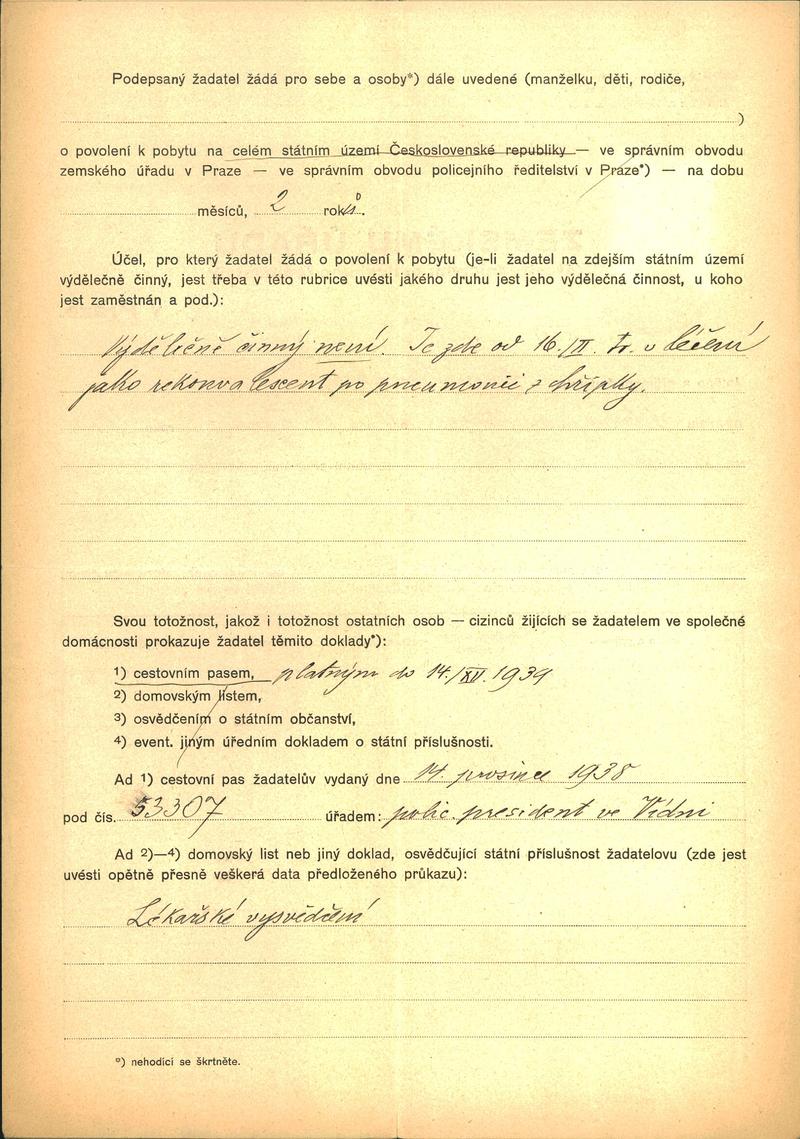 Podepsaný žadatel žádá pro sebe a osoby*) dále uvedené (manželku, děti, rodiče,
)
o povolení k pobytu na celém státním území Československé republiky — ve správním obvodu
zemského úřadu v Praze — ve správním obvodu policejního ředitelství v Praze*) — na dobu
měsíců, 2 roků.
Účel, pro který žadatel žádá o povolení k pobytu (je-li žadatel na zdejším státním území
výdělečně činný, jest třeba v této rubrice uvésti jakého druhu jest jeho výdělečná činnost, u koho
jest zaměstnán a pod.):
Výdělečně činný není. Je zde od 16./II. tr. v léčení
jako rekonvalescent po pneumonii z chřipky.
Svou totožnost, jakož i totožnost ostatních osob — cizinců žijících se žadatelem ve společné
domácnosti prokazuje žadatel těmito doklady*):
1) cestovním pasem, platným do 14./XII. 1939
2) domovským listem,
3) osvědčením o státním občanství,
4) event. jiným úředním dokladem o státní příslušnosti.
Ad 1) cestovní pas žadatelův vydaný dne 14. prosince 1938
pod čís. 53307 úřadem: polic. president ve Vídni
Ad 2)—4) domovský list neb jiný doklad, osvědčující státní příslušnost žadatelovu (zde jest
uvésti opětně přesně veškerá data předloženého průkazu):
Lékařské vysvědčení
*) nehodící se škrtněte.